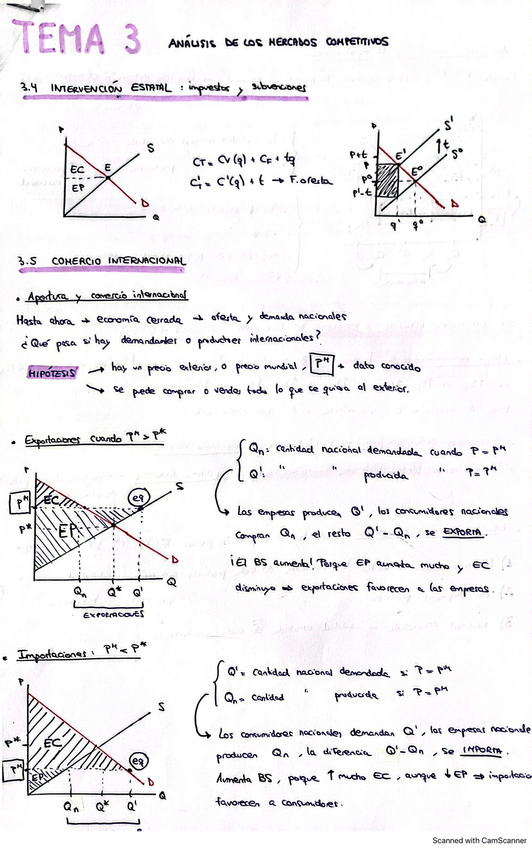 TEMA 3 ANÁLISIS DE LOS MERCADOS COMPETITIVOS
3.4 INTERVENCIÓN ESTATAL : impuestos y subvenciones
P
EC
EP
E
S
D
Q
CT = CV(q) + CF + tq
C' = C'(q) + t → F. oferta
P
P+t
P⁰
P'-t
E'
E⁰
S'
t
S⁰
D
q'
q⁰
Q
3.5 COMERCIO INTERNACIONAL
• Apertura y comercio internacional
Hasta ahora → economía cerrada → oferta y demanda nacionales
¿Qué pasa si hay demandantes o productores internacionales?
HIPÓTESIS → hay un precio exterior, o precio mundial, Pᴹ → dato conocido
→ se puede comprar o vender todo lo que se quiera al exterior.
• Exportaciones cuando Pᴹ > P*
P
Pᴹ
P*
EC
EP
eq
S
D
Q
Qn Q* Q'
EXPORTACIONES
Qn: cantidad nacional demandada cuando P = Pᴹ
Q': " " producida " P = Pᴹ
Las empresas producen Q', los consumidores nacionales
compran Qn, el resto Q' - Qn, se EXPORTA.
¡El BS aumenta! Porque EP aumenta mucho y EC
disminuye ⇒ exportaciones favorecen a las empresas.
• Importaciones : Pᴹ < P*
P
P*
Pᴹ
EC
EP
eq
S
D
Q
Qn Q* Q'
Q' = cantidad nacional demandada si P = Pᴹ
Qn = cantidad " producida si P = Pᴹ
Los consumidores nacionales demandan Q', las empresas nacionale
producen Qn, la diferencia Q' - Qn, se IMPORTA.
Aumenta BS, porque ↑ mucho EC, aunque ↓ EP ⇒ importacio
favorecen a consumidores.
Scanned with CamScanner